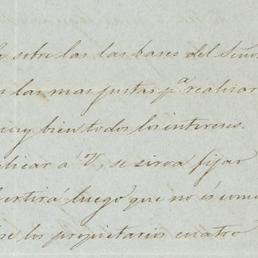 sobre las las bases del Señor
las mas justas p.ª realizar
muy bien todos los intereses.
plicar á V, se sirva fijar
vertirá luego que no és com
los propietarios cuatro